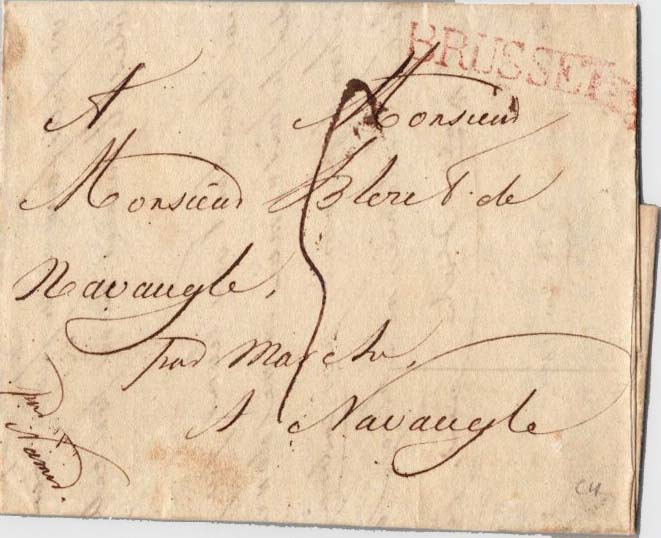 BRUSSEL
A Monsieur
Monsieur de
Navaugle,
par Marche,
A Navaugle
par
Namur.
5
CH